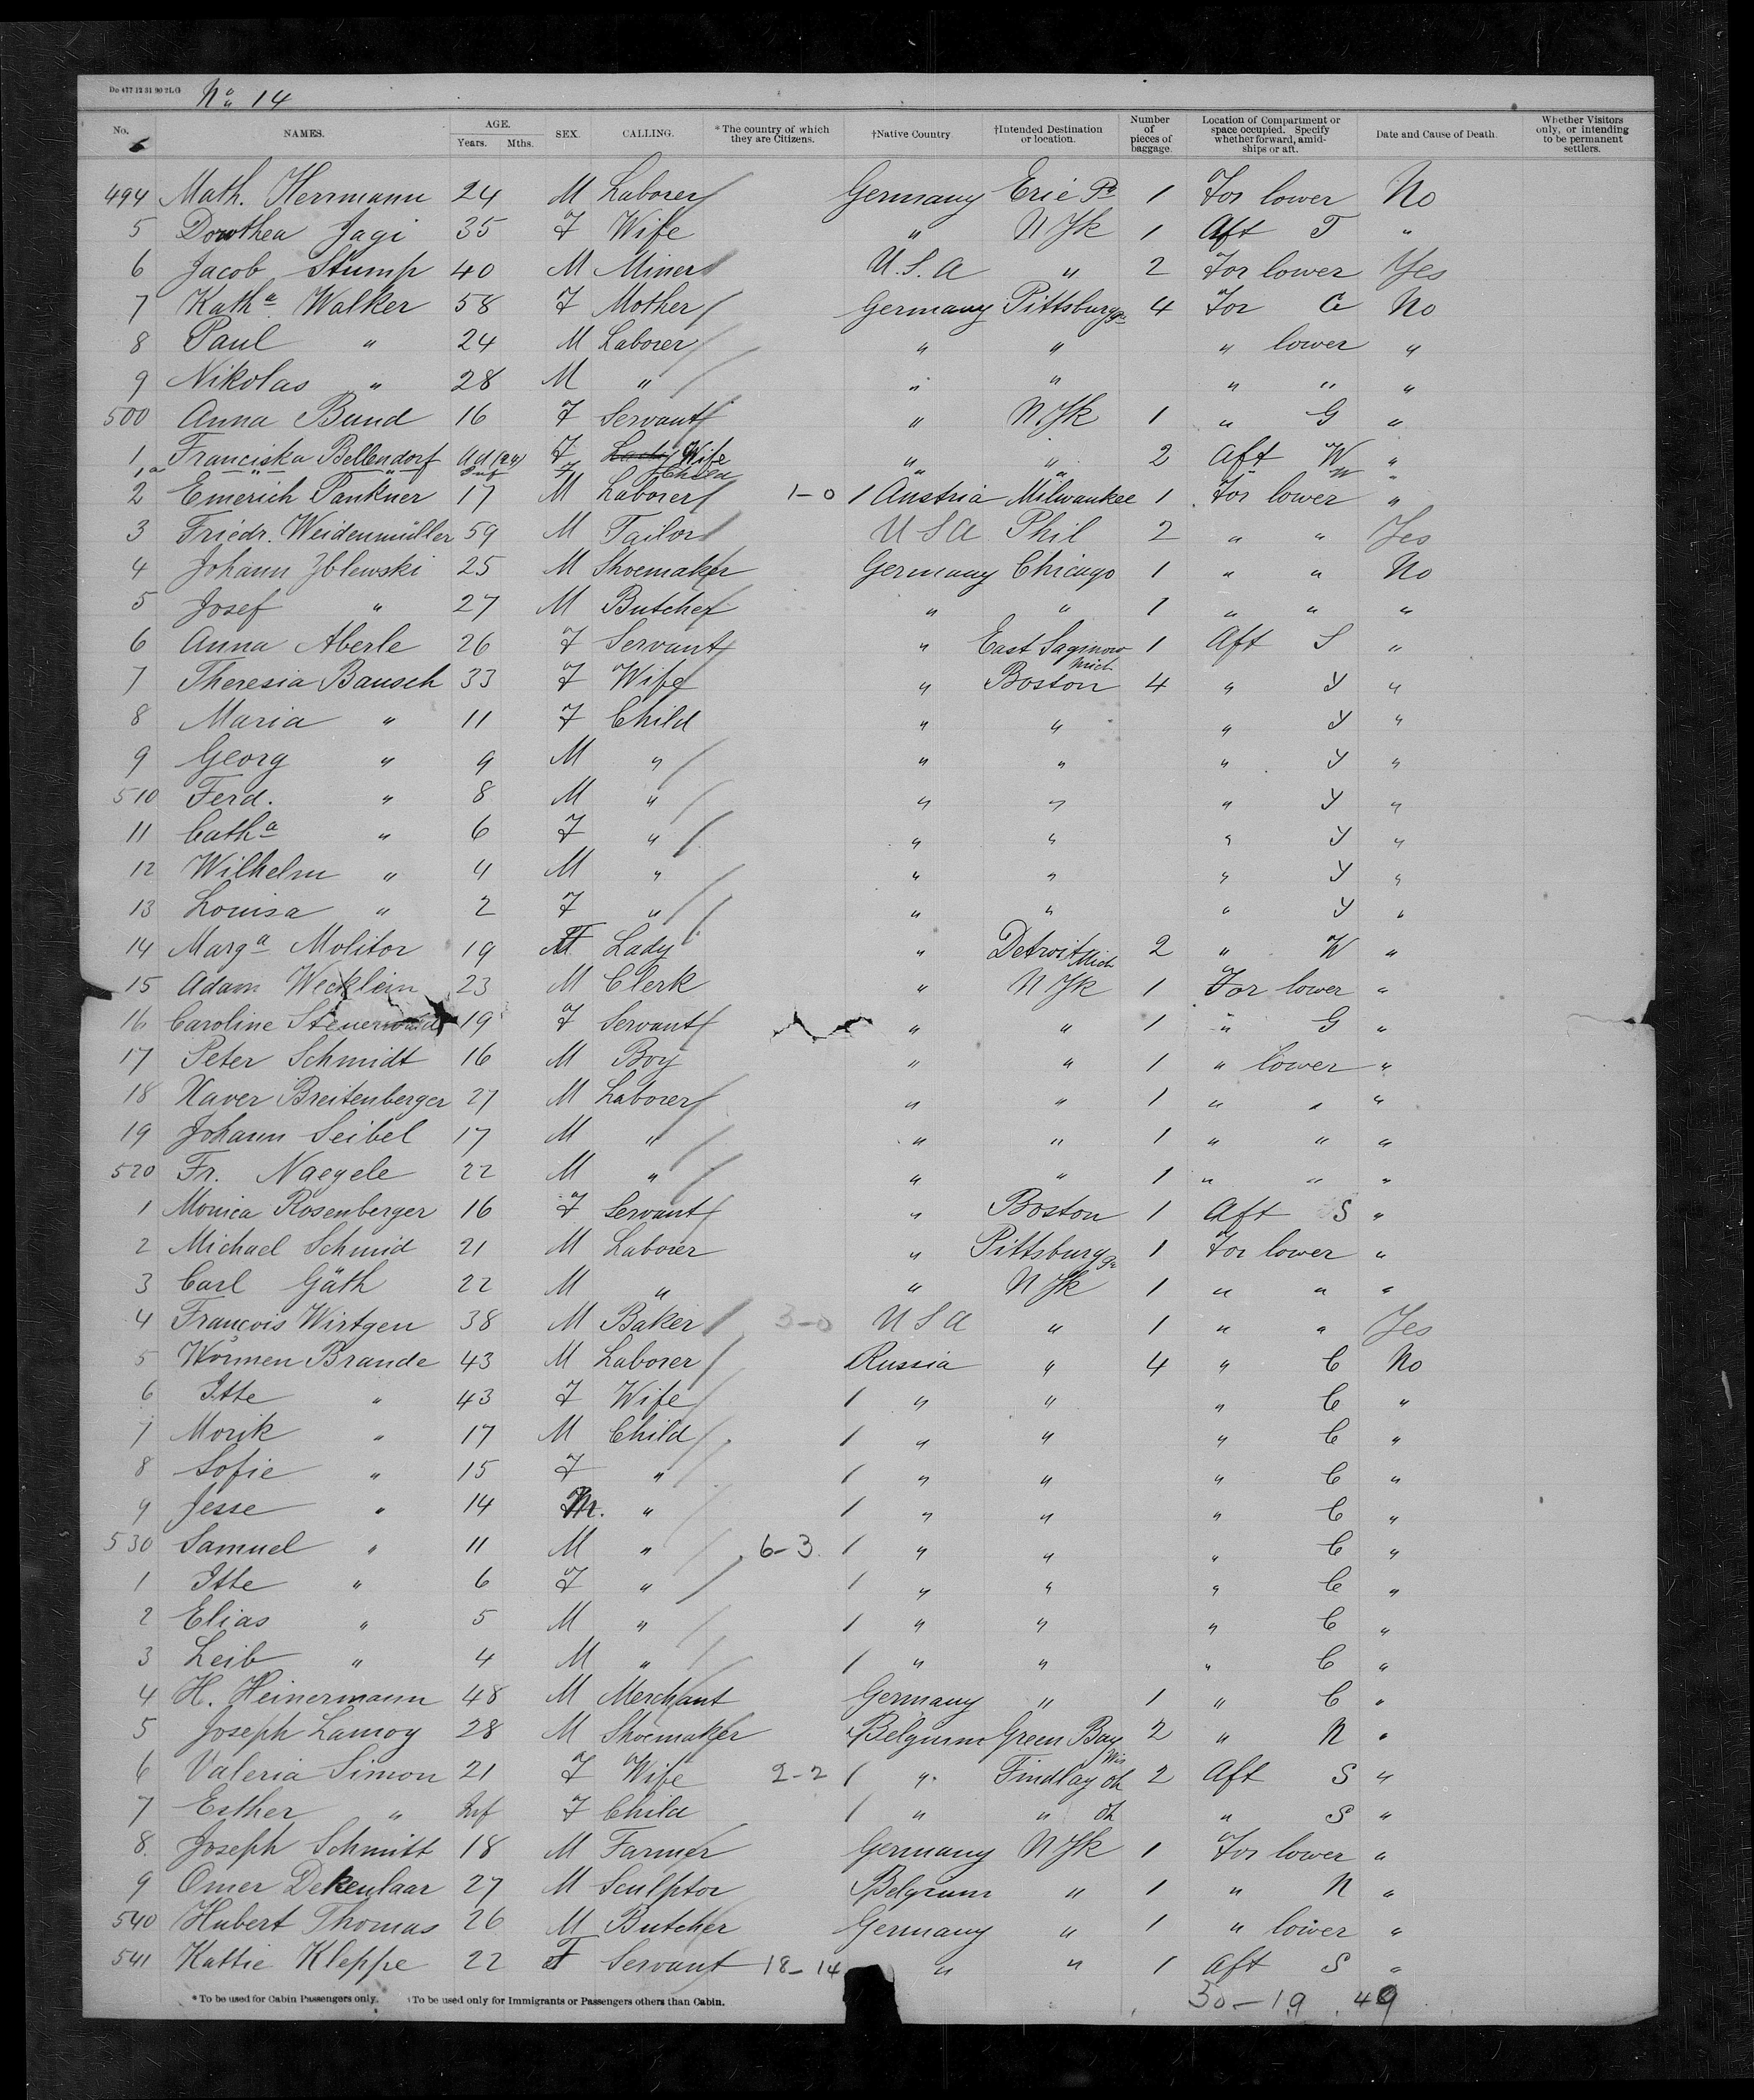 Do 477 12 31 90 2LG No 14
No. NAMES. AGE. Years. Mths. SEX. CALLING. *The country of which they are Citizens. †Native Country. †Intended Destination or location. Number of pieces of baggage. Location of Compartment or space occupied. Specify whether forward, amidships or aft. Date and Cause of Death. Whether Visitors only, or intending to be permanent settlers.
6
494 Math. Herrmann 24 M Laborer Germany Erie Pa 1 For lower No
5 Dorothea Jagi 35 F Wife " N Yk 1 Aft T "
6 Jacob Stump 40 M Miner U.S.A " 2 For lower Yes
7 Katha Walker 58 F Mother Germany Pittsburg Pa 4 For G No
8 Paul " 24 M Laborer " " " lower "
9 Nikolas " 28 M " " " " " "
500 Anna Bund 16 F Servant " N Yk 1 " G "
1 Franciska Bellendorf Ad (24) F Lady Wife " " 2 Aft W "
1a " " Inf F Child " " " W "
2 Emerich Pankner 17 M Laborer 1-0 1 Austria Milwaukee 1 For lower "
3 Friedr. Weidenmüller 59 M Tailor U S A Phil 2 " " Yes
4 Johann Zblewski 25 M Shoemaker Germany Chicago 1 " " No
5 Josef " 27 M Butcher " " 1 " " "
6 Anna Aberle 26 F Servant " East Saginaw Mich 1 Aft S "
7 Theresia Bausch 33 F Wife " Boston 4 " Y "
8 Maria " 11 F Child " " " Y "
9 Georg " 9 M " " " " Y "
510 Ferd. " 8 M " " " " Y "
11 Catha " 6 F " " " " Y "
12 Wilhelm " 4 M " " " " Y "
13 Louisa " 2 F " " " " Y "
14 Marga Molitor 19 F Lady " Detroit Mich 2 " W "
15 Adam Wecklein 23 M Clerk " N Yk 1 For lower "
16 Caroline Steuerwald 19 F Servant " " 1 " G "
17 Peter Schmidt 16 M Boy " " 1 " lower "
18 Xaver Breitenberger 27 M Laborer " " 1 " " "
19 Johann Seibel 17 M " " " 1 " " "
520 Fr. Naegele 22 M " " " 1 " " "
1 Monica Rosenberger 16 F Servant " Boston 1 Aft S "
2 Michael Schmid 21 M Laborer " Pittsburg Pa 1 For lower "
3 Carl Gäth 22 M " " N Yk 1 " " "
4 François Wirtgen 38 M Baker 3-0 U S A " 1 " " Yes
5 Wörmen Brande 43 M Laborer Russia " 4 " C No
6 Itte " 43 F Wife 1 " " " C "
7 Morik " 17 M Child 1 " " " C "
8 Sofie " 15 F " 1 " " " C "
9 Jesse " 14 M. " 1 " " " C "
530 Samuel " 11 M " 6-3 1 " " " C "
1 Itte " 6 F " 1 " " " C "
2 Elias " 5 M " 1 " " " C "
3 Leib " 4 M " 1 " " " C "
4 H. Heinermann 48 M Merchant Germany " 1 " C "
5 Joseph Lamoy 28 M Shoemaker Belgium Green Bay Wis 2 " N "
6 Valeria Simon 21 F Wife 2-2 1 " Findlay Oh 2 Aft S "
7 Esther " Inf F Child 1 " " Oh " S "
8. Joseph Schmitt 18 M Farmer Germany N Yk 1 For lower "
9 Omer Dekenlaar 27 M Sculptor Belgium " 1 " N "
540 Hubert Thomas 26 M Butcher Germany " 1 " lower "
541 Kattie Kleppe 22 F Servant 18-14 " " 1 Aft S "
*To be used for Cabin Passengers only. †To be used only for Immigrants or Passengers others than Cabin. 30-19 49